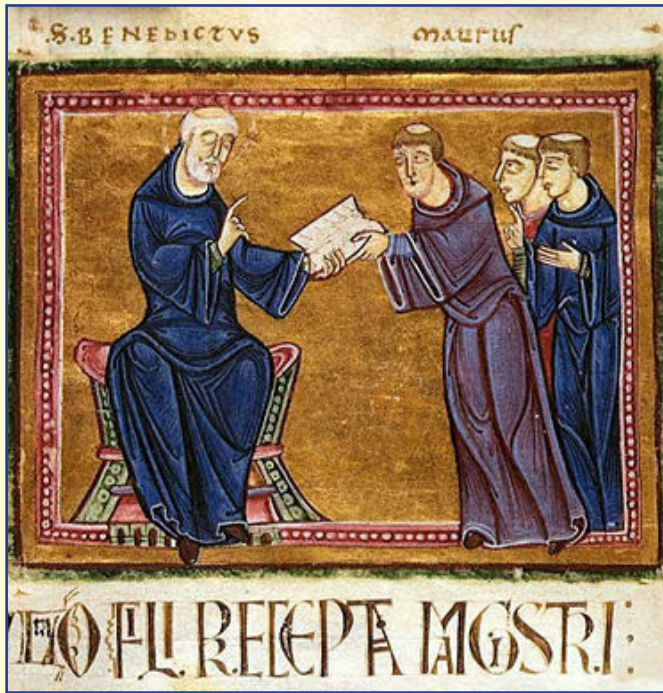 S. BENEDICTVS maurus
FILI. PRECEPTA MAGISTRI: